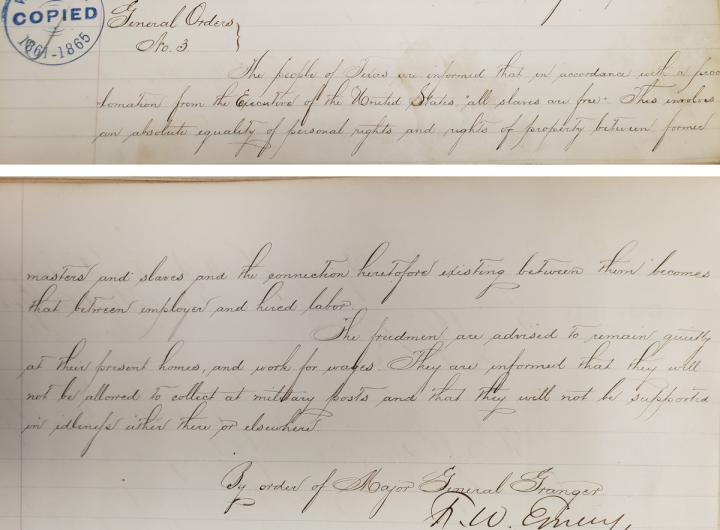 COPIED
1861-1865
General Orders
No. 3.
The people of Texas are informed that in accordance with a proc
lamation from the Executive of the United States, "all slaves are free". This involves
an absolute equality of personal rights and rights of property between former
masters and slaves and the connection heretofore existing between them becomes
that between employer and hired labor.
The freedmen are advised to remain quietly
at their present homes, and work for wages. They are informed that they will
not be allowed to collect at military posts and that they will not be supported
in idleness either there or elsewhere.
By order of Major General Granger
F. W. Emery